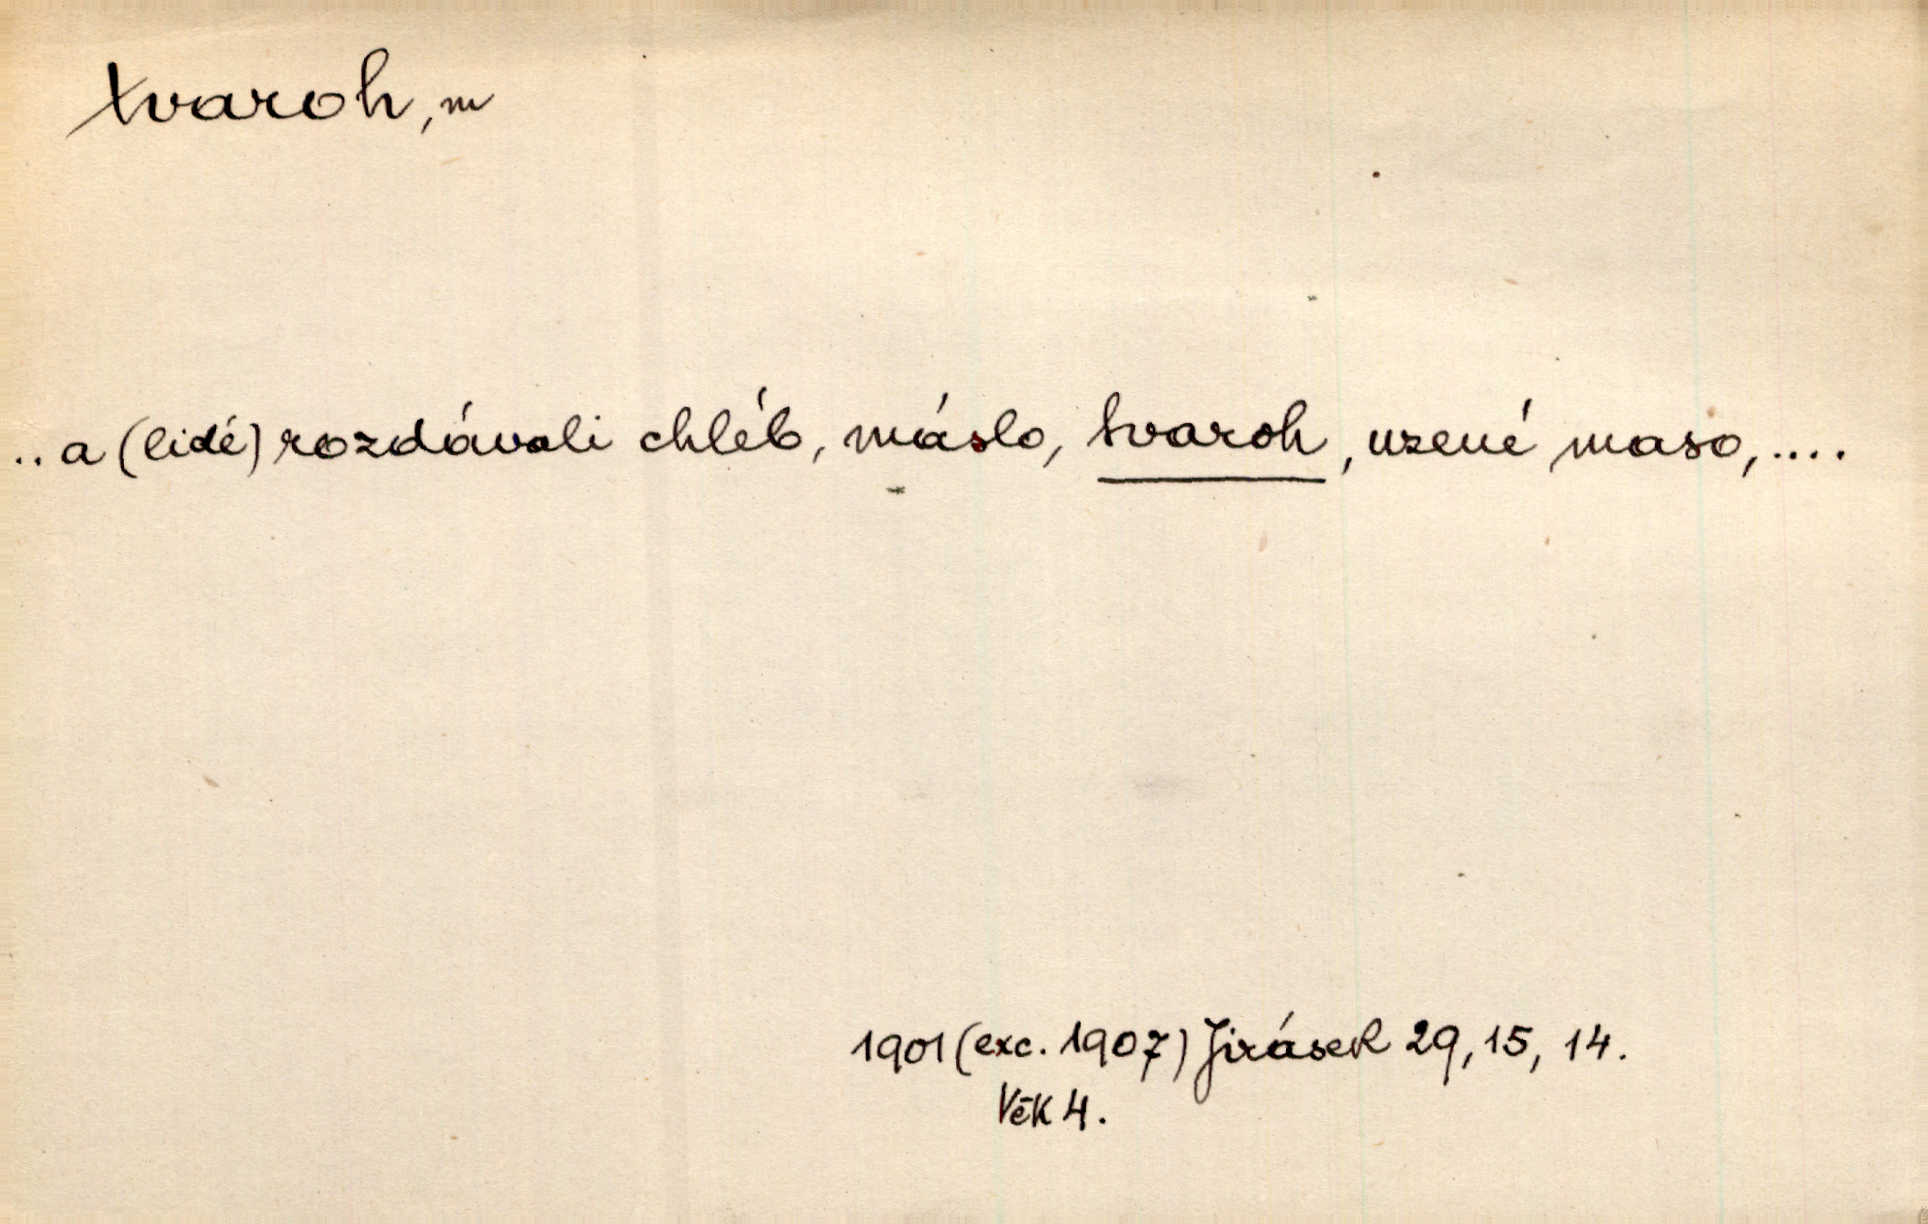 tvaroh, m
.. a (lidé) rozdávali chléb, máslo, tvaroh, uzené maso, ....
1901 (exc. 1907) Jirásek 29, 15, 14.
Věk 4.